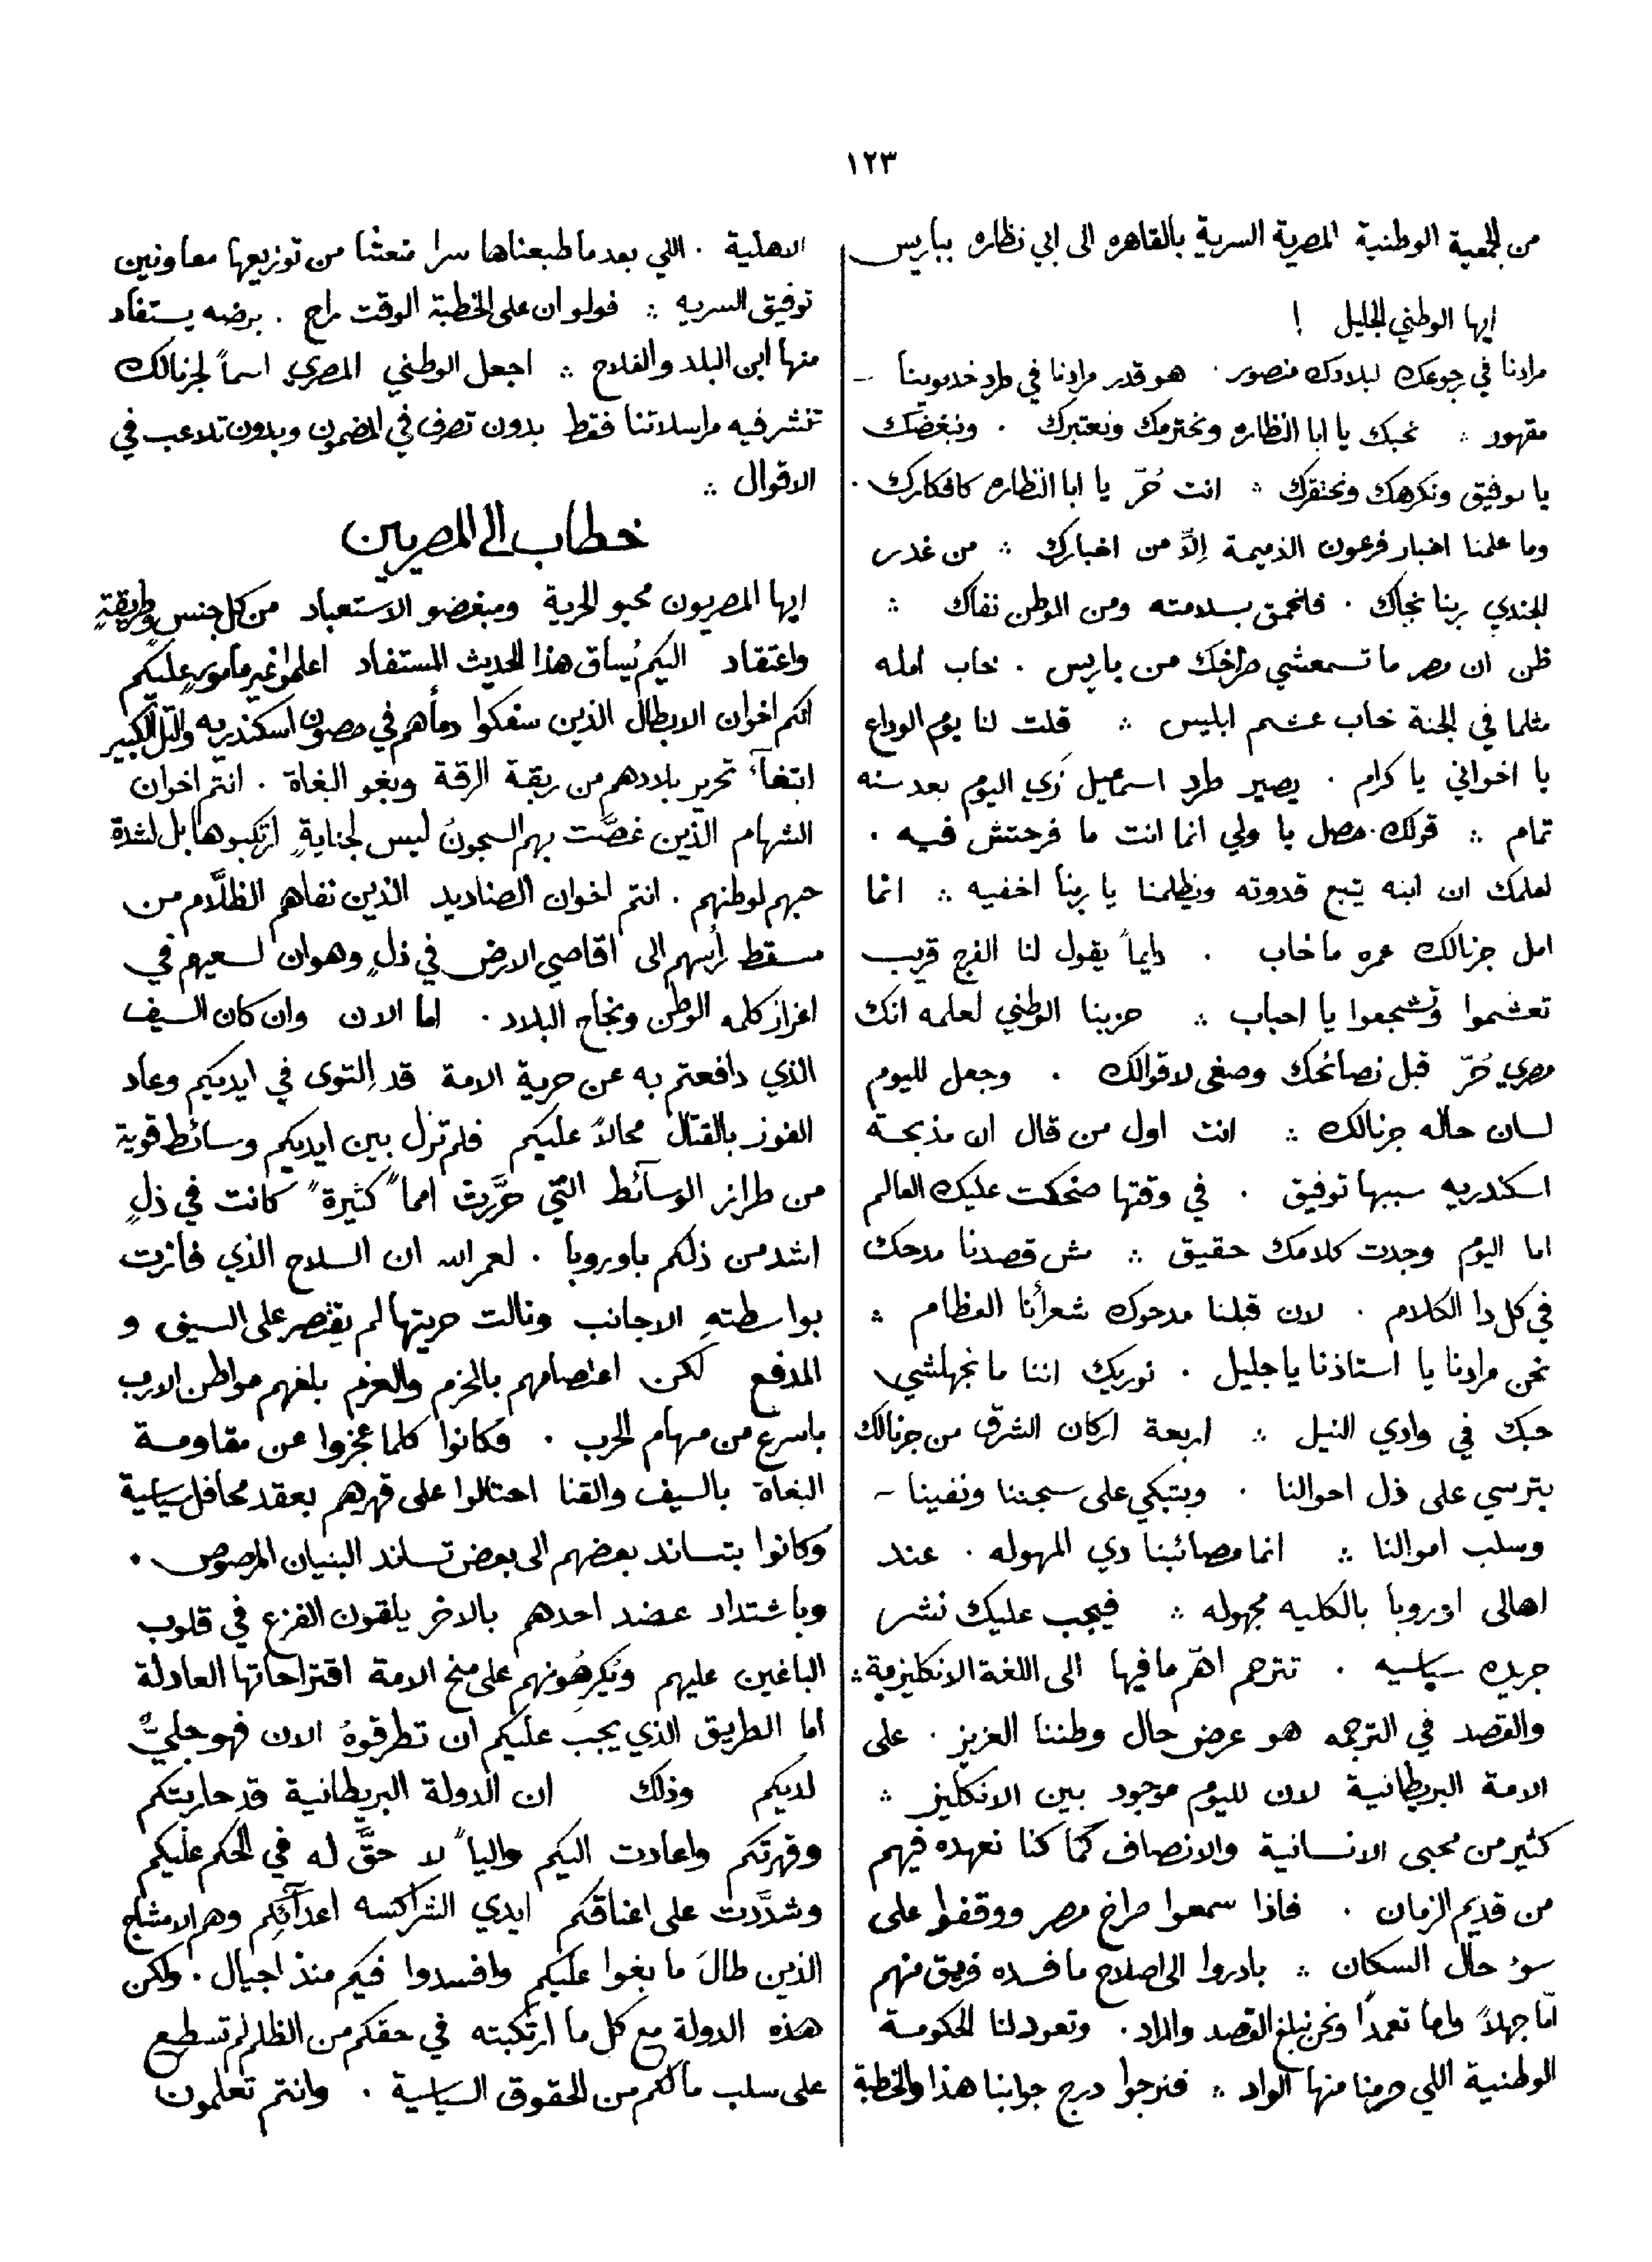 ١٢٣
من الجمعية الوطنية المصرية السرية بالقاهره الى ابي نظاره بباريس
ايها الوطني الجليل !
مرادنا في رجوعك لبلادك منصور . هو قدر مرادنا في طرد خديوينا –
مقهور ؞ نحبك يا ابا النظاره ونحترمك ونعتبرك . ونبغضك
يا توفيق ونكرهك ونحتقرك ؞ انت حُرّ يا ابا النظاره كافكارك .
وما علمنا اخبار فرعون الذميمة اِلاَّ من اخبارك ؞ من غدر
الجندي ربنا نجاك . فانحمق بسلامته ومن الوطن نفاك ؞
ظن ان مصر ما تسمعشي صراخك من باريس . خاب امله
مثلما في الجنة خاب عشم ابليس ؞ قلت لنا يوم الوداع
يا اخواني يا كرام . يصير طرد اسمعيل زي اليوم بعد سنه
تمام ؞ قولك حصل يا ولي انما انت ما فرحتش فيه .
لعلمك ان ابنه يتبع قدوته ويظلمنا يا ربنا اخفيه ؞ انما
امل جرنالك عمره ما خاب . دايماً يقول لنا الفرج قريب
تعشموا وتشجعوا يا احباب ؞ حزبنا الوطني لعلمه انك
مصري حُرّ قبل نصائحك وصغى لاقوالك . وجعل لليوم
لسان حاله جرنالك ؞ انت اول من قال ان مذبحة
اسكندريه سببها توفيق . في وقتها ضحكت عليك العالم
اما اليوم وجدت كلامك حقيق ؞ مش قصدنا مدحك
في كل دا الكلام . لان قبلنا مدحوك شعرأنا العظام ؞
نحن مرادنا يا استاذنا يا جليل . نوريك اننا ما نجهلشي
حبك في وادي النيل ؞ اربعة اركان الشرق من جرنالك
بترسي على ذل احوالنا . وبتبكي على سجننا ونفينا –
وسلب اموالنا ؞ انما مصائبنا دي المهوله . عند
اهالى اوروبا بالكليه مجهوله ؞ فيجب عليك نشر
جريده سياسيه . تترجم اهمّ ما فيها الى اللغة الانكليزية ؞
والقصد في الترجمه هو عرض حال وطننا العزيز . على
الامة البريطانية لان لليوم موجود بين الانكليز ؞
كثير من محبى الانسانية والانصاف كما كنا نعهده فيهم
من قديم الزمان . فاذا سمعوا صراخ مصر ووقفوا على
سوء حال السكان ؞ بادروا الى اصلاح ما فسده فريق منهم
اّما جهلاً واما تعمداً ونحن نبلغ القصد والمراد . وتعود لنا الحكومة
الوطنية اللي حرمنا منها الواد ؞ فنرجوا درج جوابنا هذا والخطبة
الاهلية . اللي بعد ما طبعناها سرا منعتنا من توزيعها معاونين
توفيق السريه ؞ فولو ان على الخطبة الوقت راح . برضه يستفاد
منها ابن البلد والفلاح ؞ اجعل الوطني المصري اسماً لجرنالك
تنشر فيه مراسلاتنا فقط بدون تصرف في المضمون وبدون تلاعب في
الاقوال ؞
خطاب الى المصريين
ايها المصريون محبو الحرية ومبغضو الاستعباد من كل جنسٍ وطريقةٍ
واعتقاد اليكم يُساق هذا الحديث المستفاد اعلموا غير مامورٍ عليكم
انكم اخوان الابطال الذين سفكوا دمأهم في حصون اسكندريه والتلّ الكبير
ابتغآء تحرير بلادهم من ربقة الرقة وبغو البغاة . انتم اخوان
الشهام الذين غصَّت بهم السجونُ ليس لجنايةٍ ارتكبوها بل لشدة
حبهم لوطنهم . انتم اخوان الصناديد الذين نفاهم الظلَّام من
مسقط رأسهم الى اقاصي الارض في ذلٍ وهوان لسعيهم في
اعزاز كلمه الوطن ونجاح البلاد . اما الان وان كان السيف
الذي دافعتم به عن حرية الامة قد التوى في ايديكم وعاد
الفوز بالقتال محالاً عليكم فلم تزل بين ايديكم وسائط قوية
من طراز الوسآئط التي حرَّرت امماً كثيرة كانت في ذلٍ
اشد من ذلكم باوروبا . لعمر الله ان السلاح الذي فازت
بواسطتهِ الاجانب ونالت حريتها لم يقتصر على السيف و
المدفع لكن اعتصامهم بالحزم والعزم بلغهم مواطن الارب
باسرع من مهام الحرب . فكانوا كلما عجزوا عن مقاومة
البغاة بالسيف والقنا احتالوا على قهرهم بعقد محافل سياسية
وكانوا بتساند بعضهم الى بعض تساند البنيان المرصوص .
وباشتداد عضد احدهم بالاخر يلقون الفزع في قلوب
الباغين عليهم ويُكرِهُونهم على منح الامة اقتراحاتها العادلة
اما الطريق الذي يجب عليكم ان تطرقوهُ الان فهو جليٌّ
لديكم وذلك ان الدولة البريطانية قد حاربتكم
وقهرتكم واعادت اليكم والياً لا حقَّ له في الحكم عليكم
وشدَّدت على اعناقكم ايدي الشراكسه اعدآئِكم وهم الامشاج
الذين طالَ ما بغوا عليكم وافسدوا فيكم منذ اجيال . ولكن
هذه الدولة مع كل ما ارتكبته في حقكم من الظلم لم تسطع
على سلب ما لكم من الحقوق السياسية . وانتم تعلمون